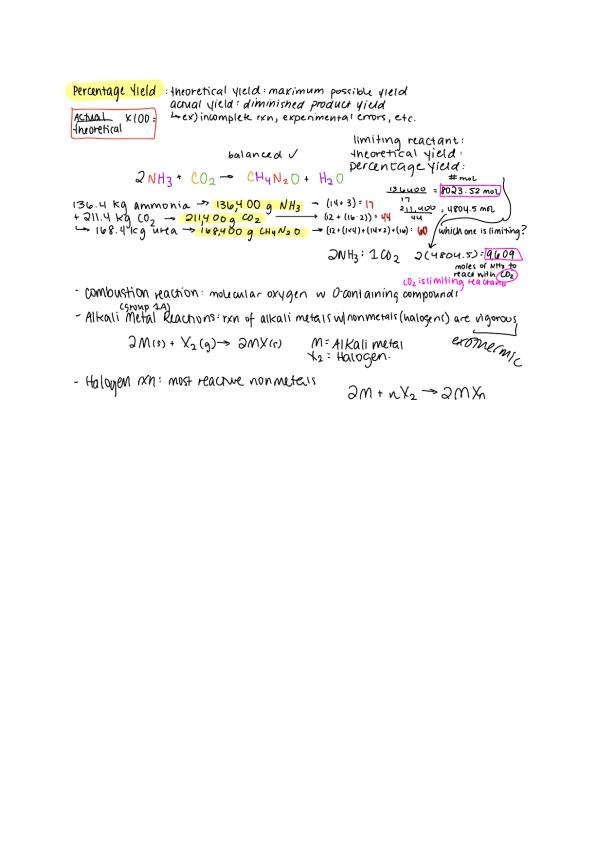 Percentage Yield : theoretical yield: maximum possible yield
actual yield: diminished product yield
Actual / theoretical x100 =
↳ ex) incomplete rxn, experimental errors, etc.
limiting reactant:
balanced ✓
theoretical yield:
percentage yield:
2NH3 + CO2 → CH4N2O + H2O
# mol
136400 / 17 = 8023.52 mol
136.4 kg ammonia → 136,400 g NH3 → (14+3) = 17
+ 211.4 kg CO2 → 211,400 g CO2 → (12 + (16·2)) = 44
211,400 / 44 = 4804.5 mol
↳ 168.4 kg urea → 168,400 g CH4N2O → (12+(1×4)+(14×2)+(16) = 60
which one is limiting?
2NH3 : 1CO2 2(4804.5) = 9609
moles of NH3 to
react with CO2
CO2 is limiting reactant
- combustion reaction: molecular oxygen w O-containing compounds
(group 1A)
- Alkali Metal Reactions: rxn of alkali metals w/nonmetals (halogens) are vigorous
exothermic
2M(s) + X2(g) → 2MX(s) M = Alkali metal
X2 = Halogen.
- Halogen rxn: most reactive nonmetals
2M + nX2 → 2MXn